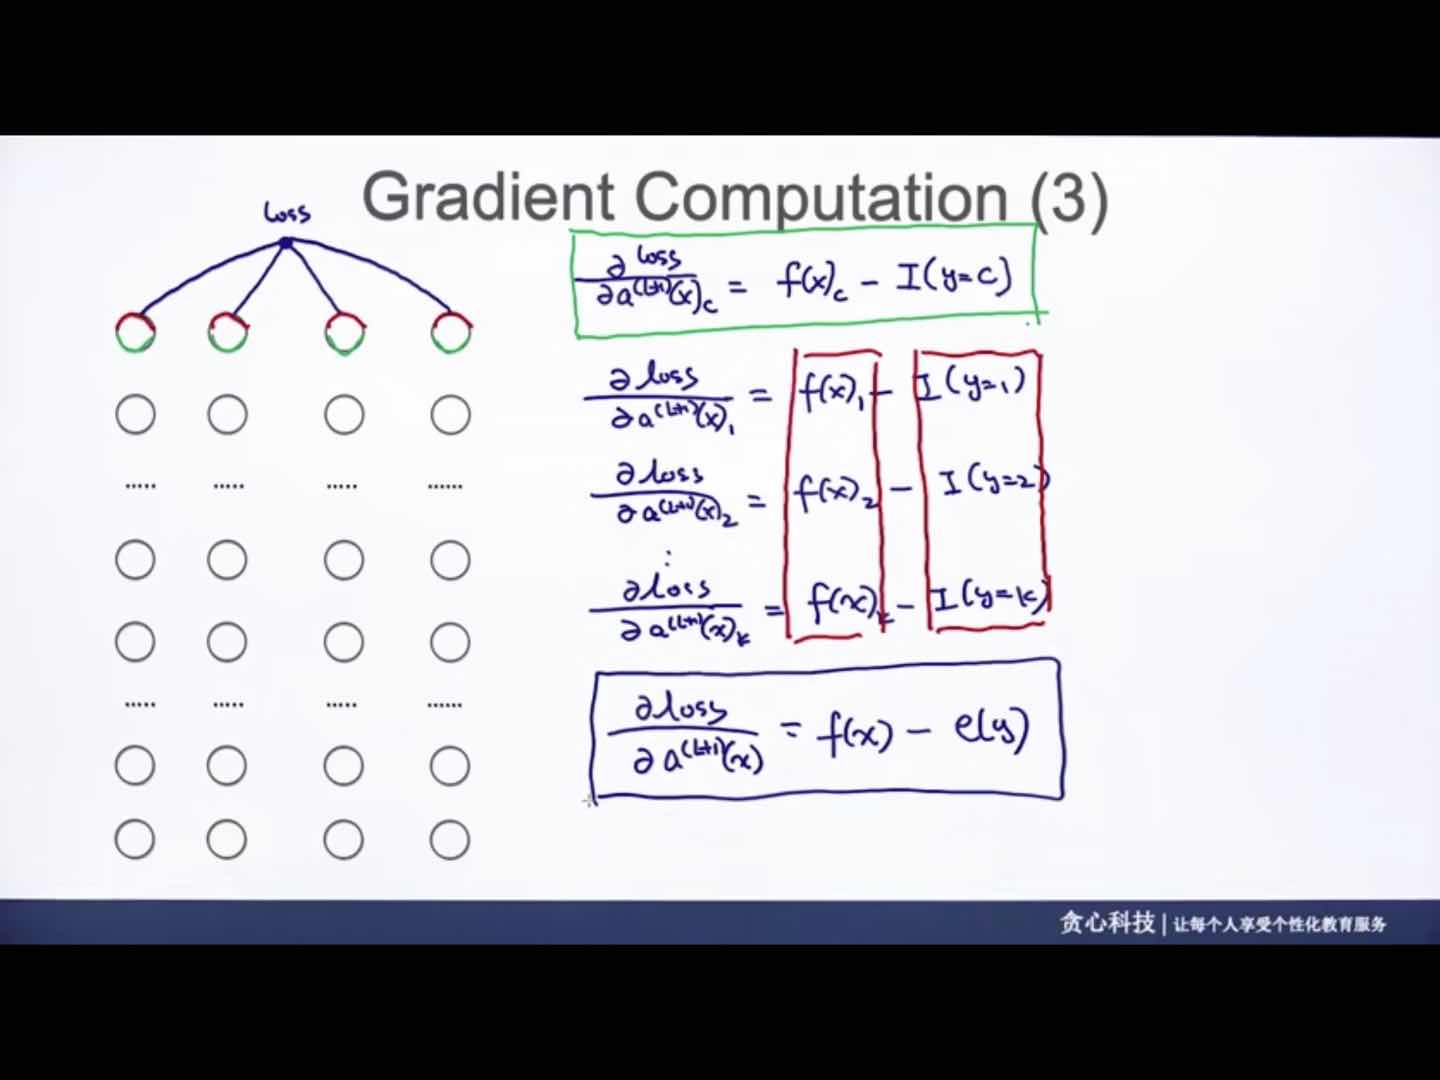 Gradient Computation (3)
loss
∂ loss / ∂a^(L+1)(x)_c = f(x)_c - I(y=c)
∂ loss / ∂a^(L+1)(x)_1 = f(x)_1 - I(y=1)
∂ loss / ∂a^(L+1)(x)_2 = f(x)_2 - I(y=2)
⋮
∂ loss / ∂a^(L+1)(x)_k = f(x)_k - I(y=k)
∂ loss / ∂a^(L+1)(x) = f(x) - e(y)
..... ..... ..... ......
..... ..... ..... ......
贪心科技 | 让每个人享受个性化教育服务